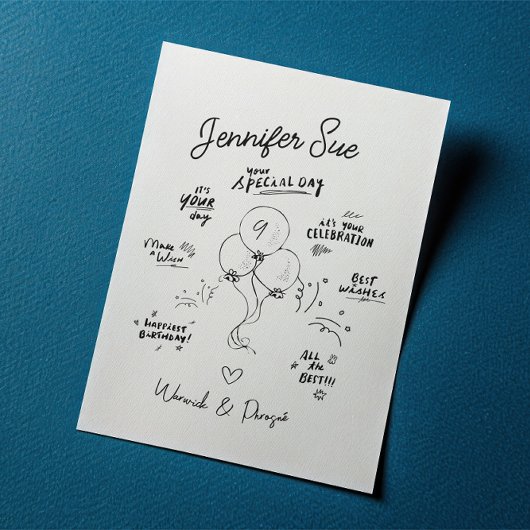 Jennifer Sue
your
SPECIAL DAY
IT'S
YOUR
day
it's YOUR
CELEBRATION
9
Make
a Wish
BEST
WISHES
for
HAPPIEST
BIRTHDAY!
ALL
the
BEST!!!
Warwick & Phrogné